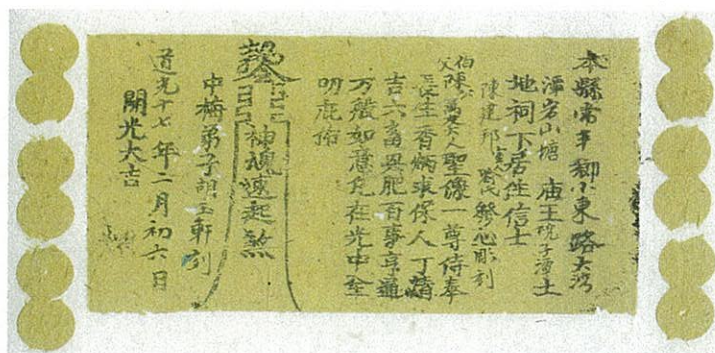 本縣常平鄉小東路大灣
潭宕山塘 庙王 潭土
地祠下居住信士
陳建邦 發心彫刻
伯父陳 萬 大人聖像一尊侍奉
生香炳求保人丁清
吉六畜興肥百事亨通
万般如意凡在光中全
叨庇佑
神魂速起煞
中梅弟子胡玉軒刻
道光十七年二月初六日
開光大吉